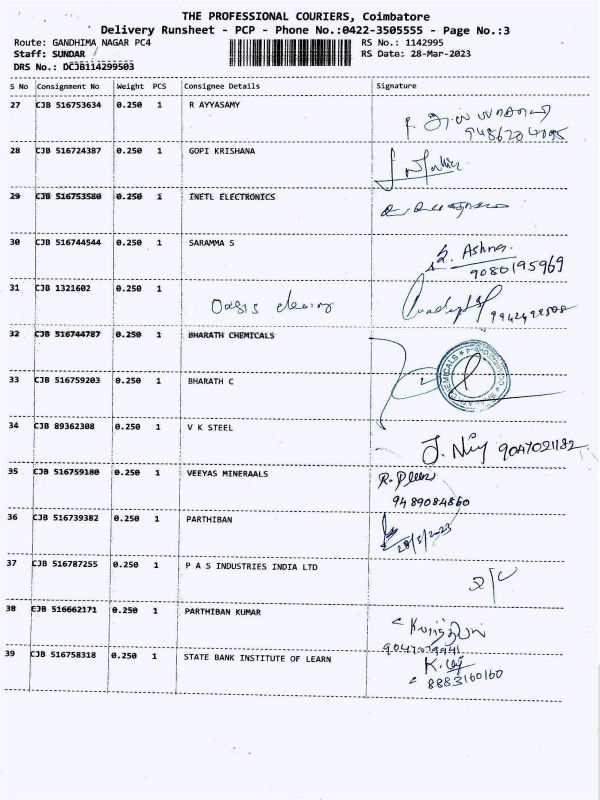 THE PROFESSIONAL COURIERS, Coimbatore
Delivery Runsheet - PCP - Phone No.:0422-3505555 - Page No.:3
Route: GANDHIMA NAGAR PC4 RS No.: 1142995
Staff: SUNDAR RS Date: 28-Mar-2023
DRS No.: DCJB114299503
S No Consignment No Weight PCS Consignee Details Signature
27 CJB 516753634 0.250 1 R AYYASAMY
28 CJB 516724387 0.250 1 GOPI KRISHANA
29 CJB 516753580 0.250 1 INETL ELECTRONICS
30 CJB 516744544 0.250 1 SARAMMA S
Ashna.
9080195969
31 CJB 1321602 0.250 1 Oasis
32 CJB 516744787 0.250 1 BHARATH CHEMICALS
33 CJB 516759203 0.250 1 BHARATH C
34 CJB 89362308 0.250 1 V K STEEL
J. 9047021182
35 CJB 516759180 0.250 1 VEEYAS MINERAALS
R.
9489084860
36 CJB 516739382 0.250 1 PARTHIBAN
28/3/2023
37 CJB 516787255 0.250 1 P A S INDUSTRIES INDIA LTD
38 CJB 516662171 0.250 1 PARTHIBAN KUMAR
39 CJB 516758318 0.250 1 STATE BANK INSTITUTE OF LEARN
8883160160